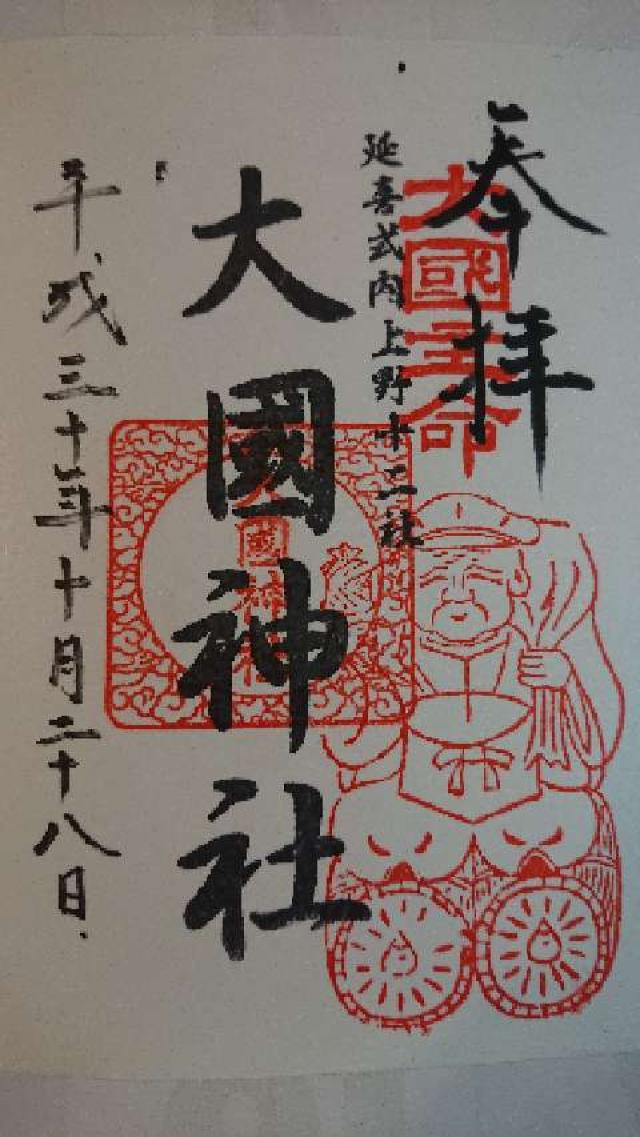 奉拝
大國主命
延喜式内上野十二社
大國神社
平成三十年十月二十八日